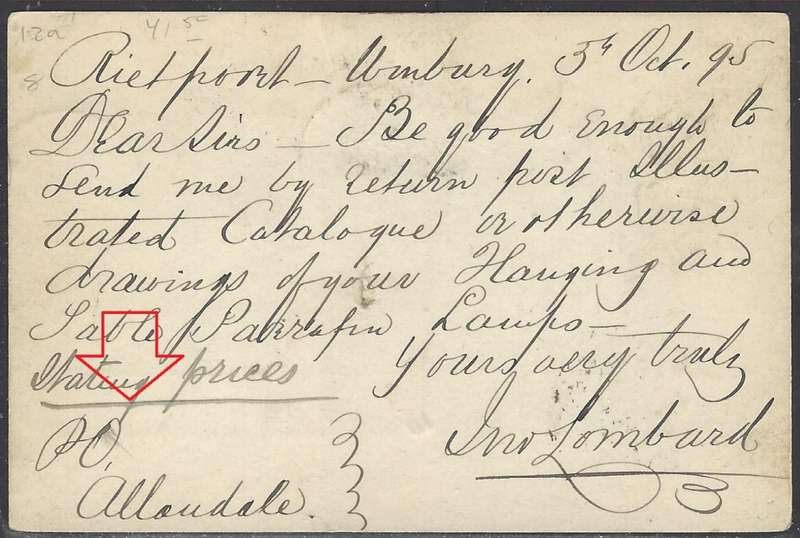 41 5c
Rietpoort – Winburg. 3rd Oct. 95
Dear Sirs – Be good Enough to
send me by return post Illus-
trated Catalogue or otherwise
drawings of your Hanging and
Table Parrafin Lamps –
Stating prices Yours very truly
PO, Jno Lombard
Allandale.